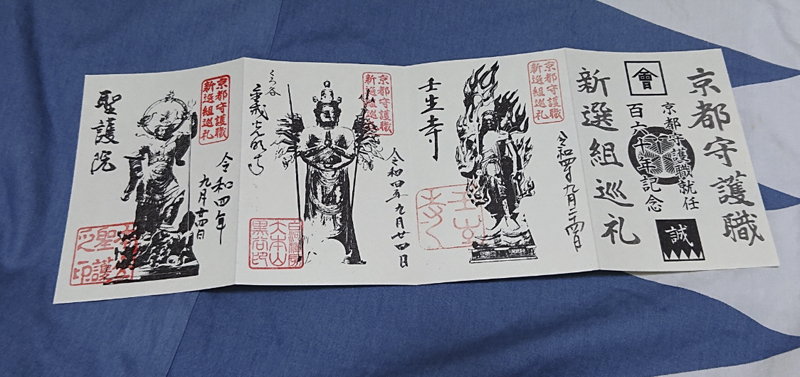 京都守護職
會
京都守護職就任
百六十年記念
誠
新選組巡礼
京都守護職
新選組巡礼
令和四年九月二四日
壬生寺
京都守護職
新選組巡礼
令和四年九月廿四日
くろ谷
大本山
京都守護職
新選組巡礼
令和四年
九月廿四日
聖護院